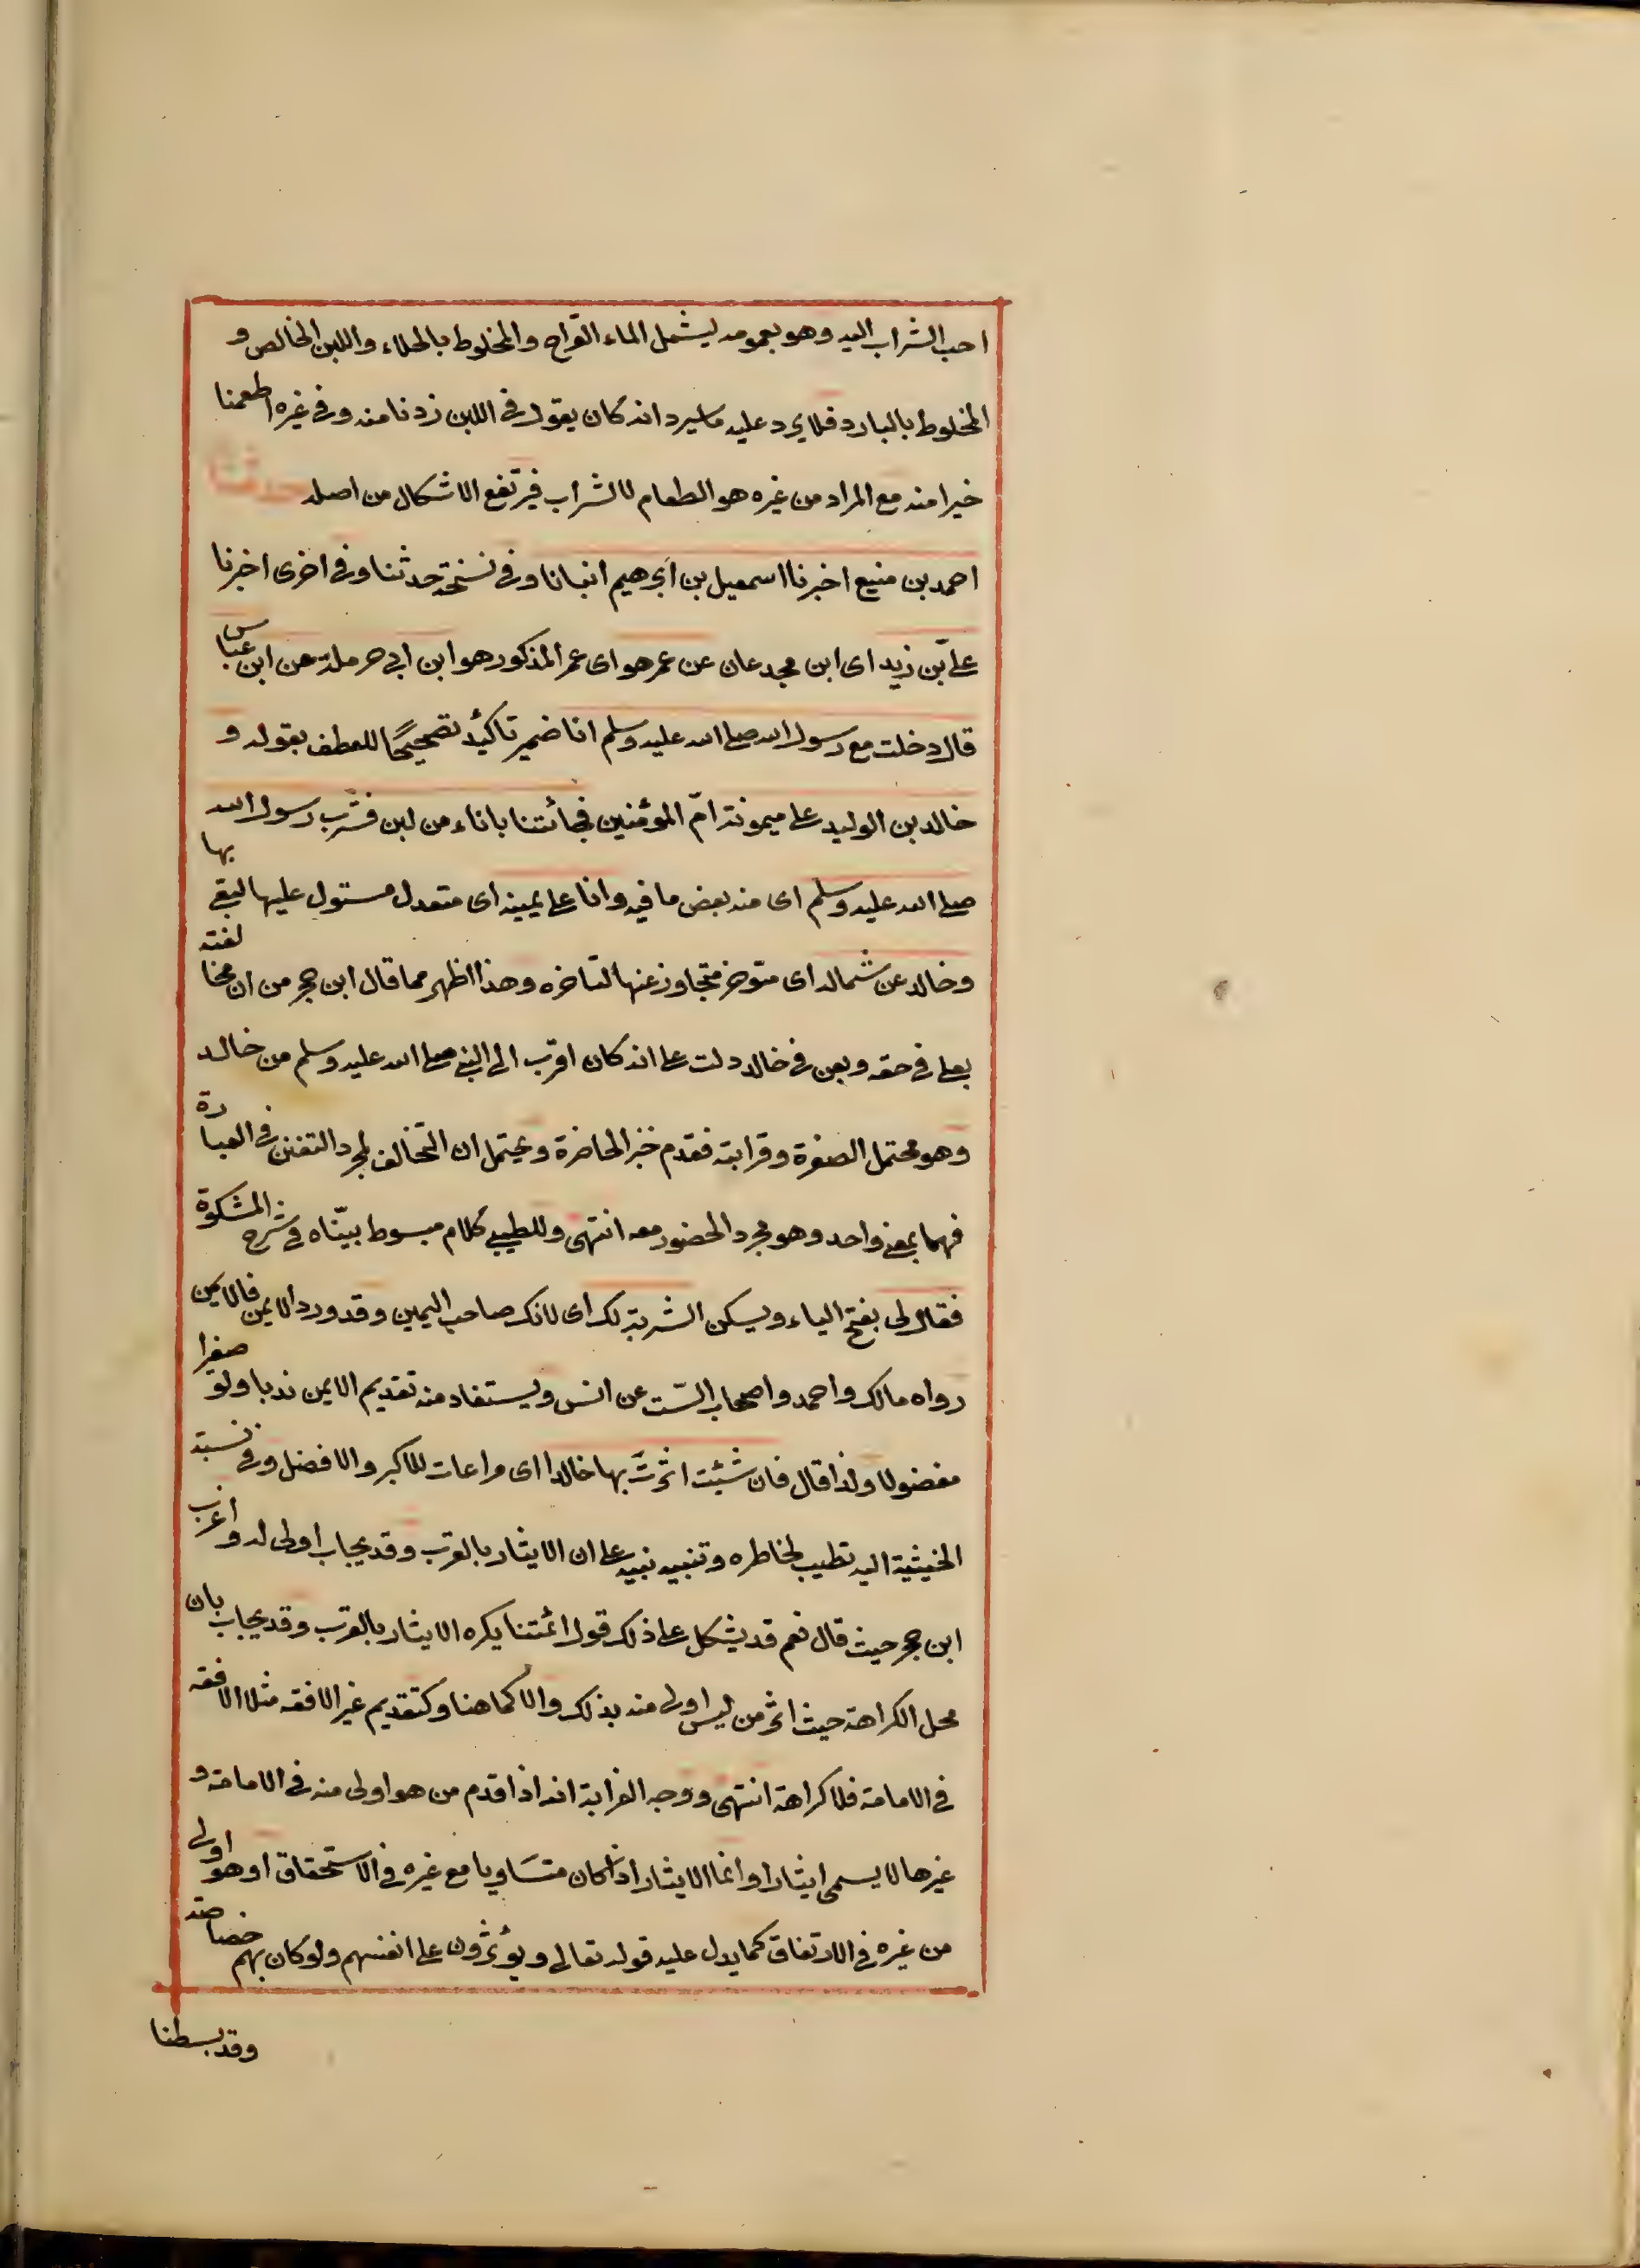 احب الشراب اليه وهو بعمومه يشمل الماء القراح والمخلوط بالحلاء واللبن الخالص و
المخلوط بالبارد فلا يرد عليه ماسيرد انه كان يقول في اللبن زدنا منه وفي غيره اطعمنا
خيرا منه مع المراد من غيره هو الطعام لا الشراب فيرتفع الاشكال من اصله حدثنا
احمد بن منيع اخبرنا اسمعيل بن ابرهيم انبانا وفي نسخة حدثنا وفي اخرى اخبرنا
علي بن زيد اى ابن مجدعان عن عمر هو اى عمر المذكور هو ابن ابي حرملة عن ابن عباس
قال دخلت مع رسول الله صلى الله عليه وسلم انا ضمير تاكيد تصحيحًا للعطف بقوله و
خالد بن الوليد على ميمونة امّ المؤمنين فجائتنا باناء من لبن فشرب رسول الله
صلى الله عليه وسلم اى منه بعض ما فيه وانا على يمينه اى متعدل مستول عليها لبقى بها
وخالد عن شماله اى متوخر متجاوز عنها لتاخره وهذا اظهر مما قال ابن حجر من ان مخالفته
بعلى في حقه وبعن في خالد دلت على انه كان اقرب الى النبي صلى الله عليه وسلم من خالد
وهو محتمل الصغرة وقرابته فقدم خبر الحاضرة ويحتمل ان التخالف لمجرد التفنن في العبارة
فهما بمعنى واحد وهو مجرد الحضور معه انتهى وللطيبي كلام مبسوط بيّناه في شرح المشكوة
فقال لى بفتح الياء ويسكن الشربة لك اى لانك صاحب اليمين وقد ورد الايمن فالايمن
رواه مالك واحمد واصحاب السّت عن انس ويستفاد منه تقديم الايمن ندبا ولو صغيرا
مفضولا ولذا قال فان شئت اثرتَ بها خالدا اى مراعات للاكبر والافضل وفي نسبة
الخيثية اليه تطيب لخاطره وتنبيه نبيه على ان الايثار بالقرب وقد يجاب اولى له واغرب
ابن حجر حيث قال نعم قد يشكل على ذلك قول ائمتنا يكره الايثار بالقرب وقد يجاب بان
محل الكراهة حيث اثر من ليس اولى منه بذلك والا كما هنا وكتقديم غير الافقه مثلا الافقه
في الامامة فلا كراهة انتهى ووجه الغرابة انه اذا قدم من هو اولى منه في الامامة و
غيرها لا يسمى ايثارا وانما الايثار اذا كان متساويا مع غيره في الاستحقاق او هو اولى
من غيره في الارتفاق كما يدل عليه قوله تعالى ويؤثرون على انفسهم ولو كان بهم خصاصة
وقد بسطنا